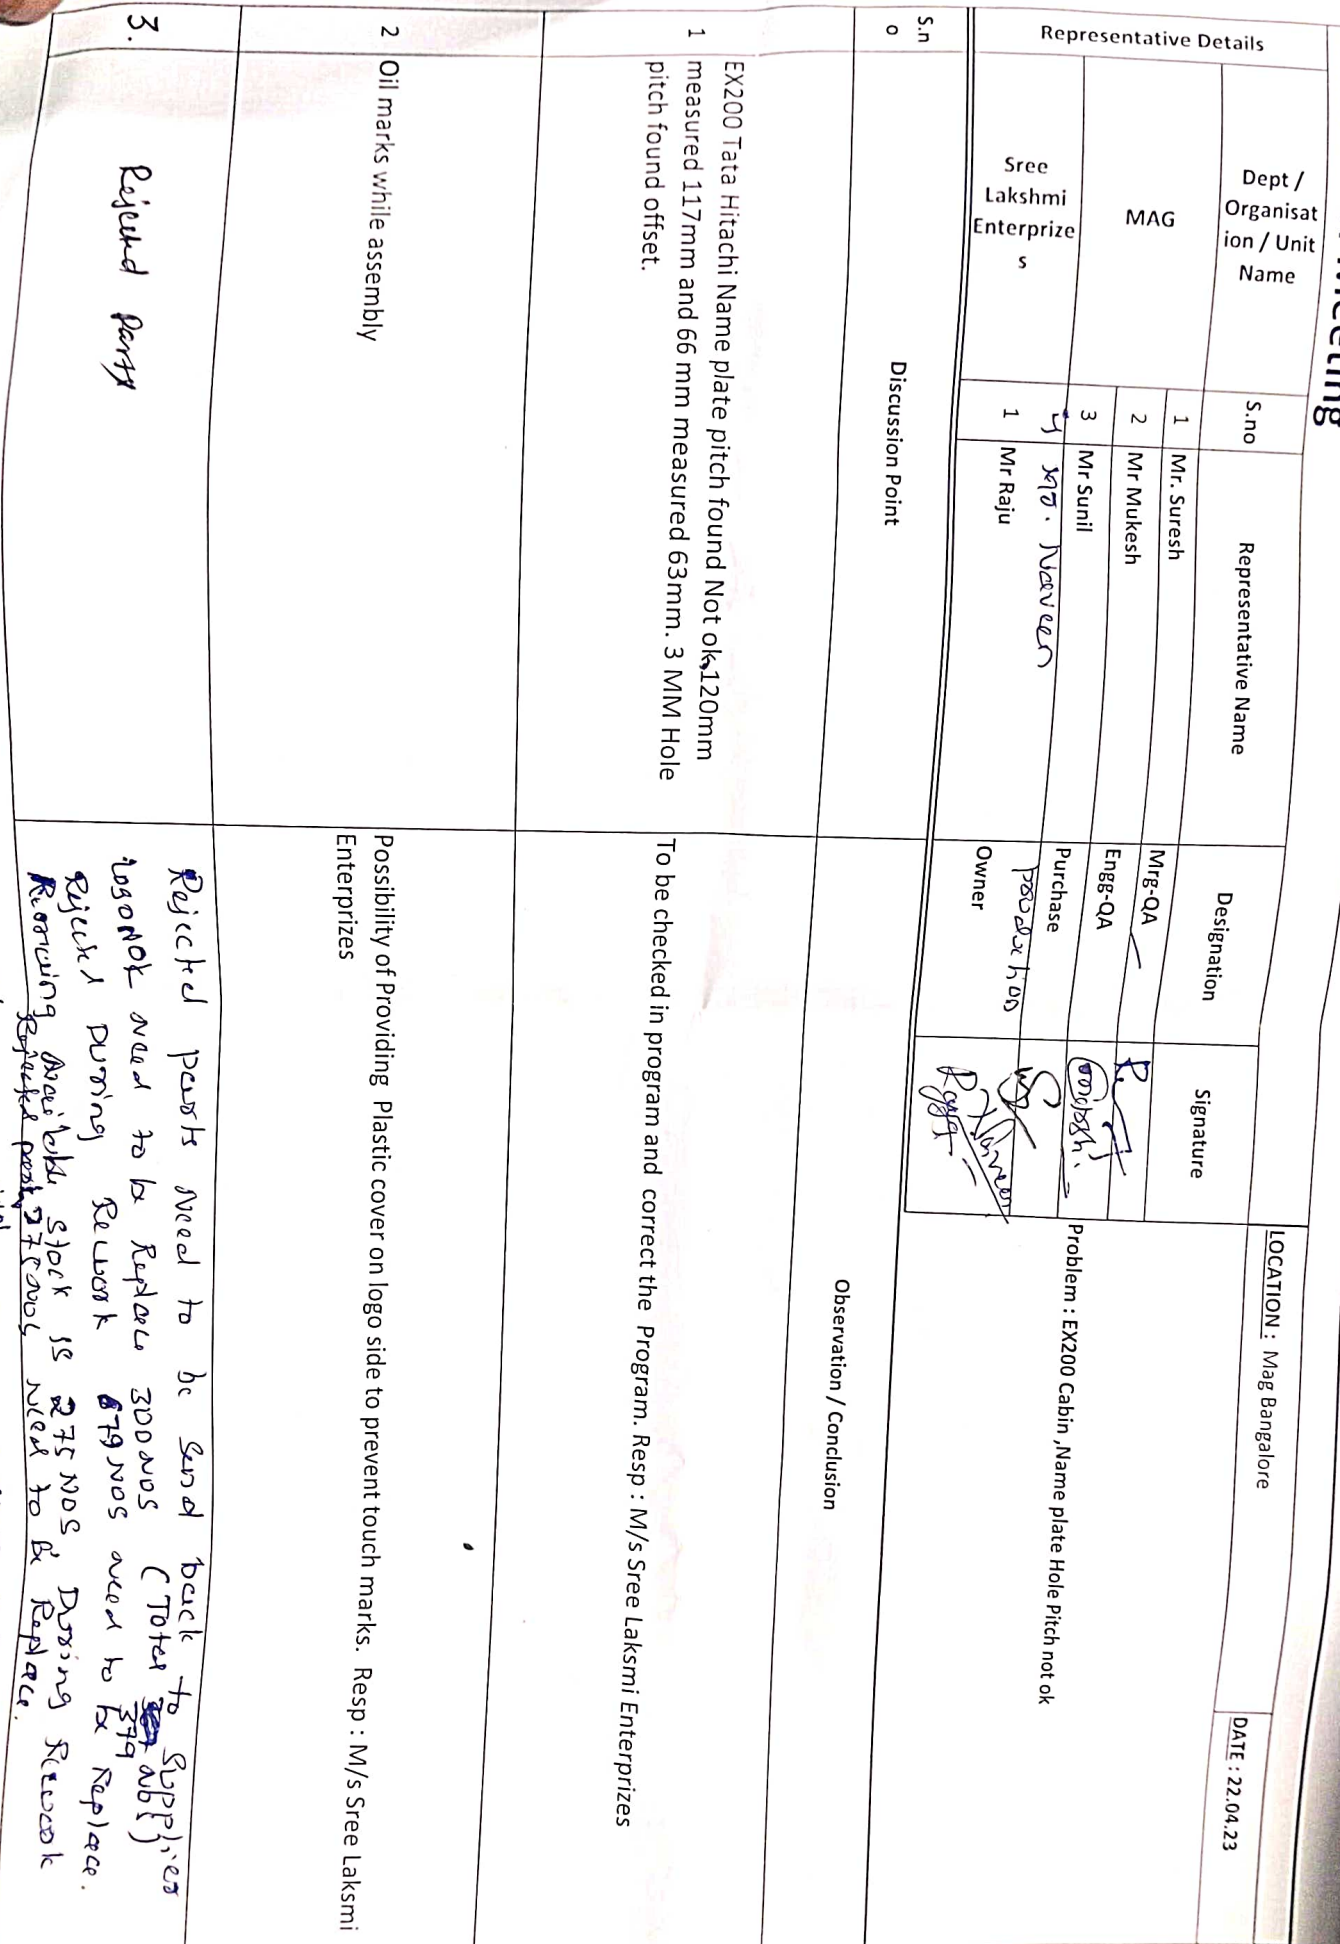 Meeting
LOCATION : Mag Bangalore
DATE : 22.04.23
Representative Details
Dept /
Organisat
ion / Unit
Name
S.no
Representative Name
Designation
Signature
Problem : EX200 Cabin ,Name plate Hole Pitch not ok
MAG
1 Mr. Suresh Mrg-QA
2 Mr Mukesh Engg-QA
3 Mr Sunil Purchase
4 Naveen production
Naveen
Sree
Lakshmi
Enterprize
s
1 Mr Raju Owner
S.n
o
Discussion Point
Observation / Conclusion
1
EX200 Tata Hitachi Name plate pitch found Not ok,120mm
measured 117mm and 66 mm measured 63mm. 3 MM Hole
pitch found offset.
To be checked in program and correct the Program. Resp : M/s Sree Laksmi Enterprizes
2
Oil marks while assembly
Possibility of Providing Plastic cover on logo side to prevent touch marks. Resp : M/s Sree Laksmi
Enterprizes
3.
Rejected Parts
Rejected parts Need to be Send back to Supplier
Need to be Replace 300 NOS (Total 379 Nos)
Rejected During Rework 79 NOS need to be Replace.
Remaining Available stock is 275 NOS. During Rework
Rejected part 275 Nos need to be Replace.